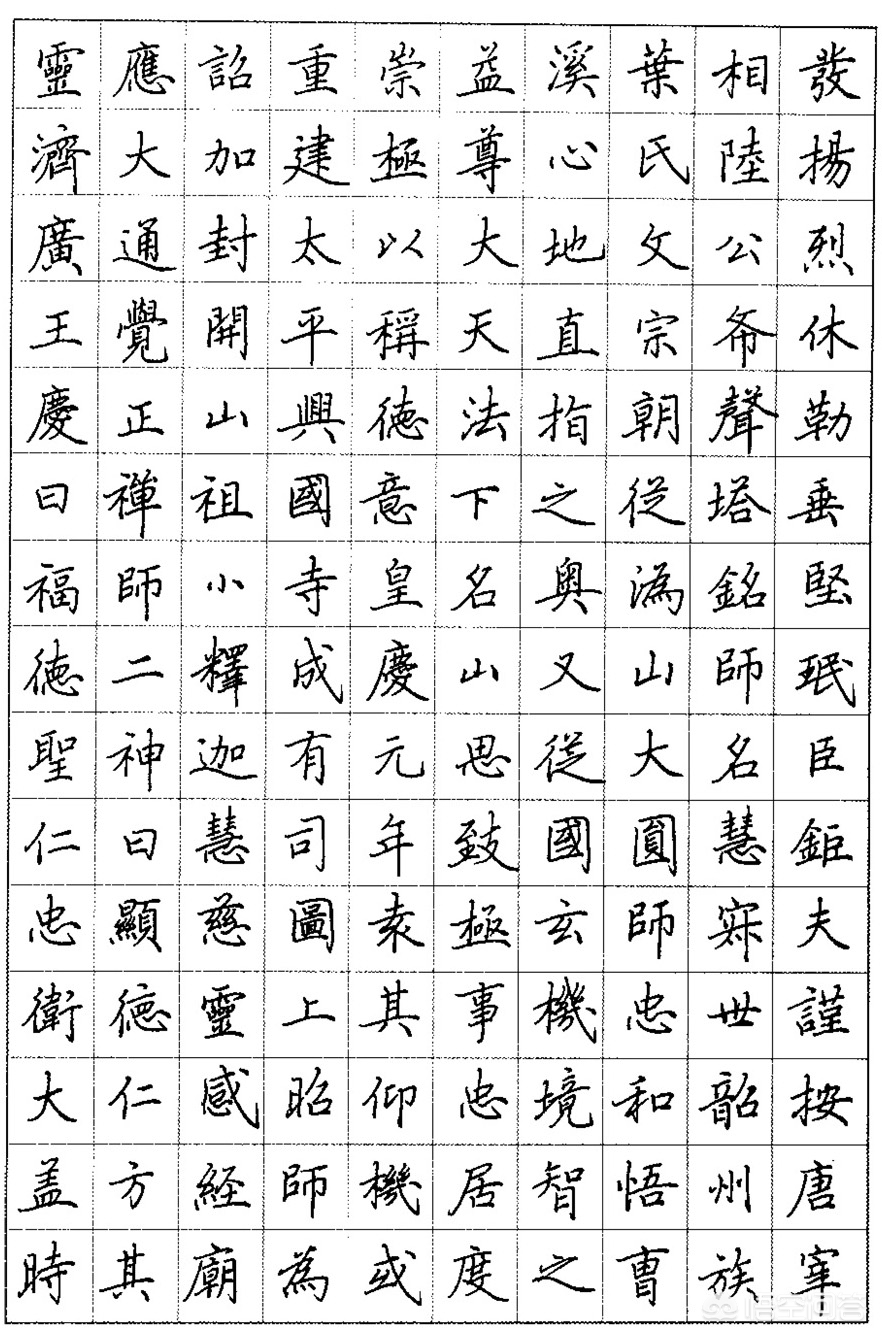 發揚烈休勒垂堅珉臣鉅夫謹按唐宰
相陸公希聲塔銘師名慧寂世韶州族
葉氏文宗朝從溈山大圓師忠和悟曹
溪心地直指之奧又從國玄機境智之
益尊大天法下名山思致極事忠居度
崇極以稱德意皇慶元年袁其仰機或
重建太平興國寺成有司圖上昭師為
詔加封開山祖小釋迦慧慈靈感經廟
應大通覺正禪師二神曰顯德仁方其
靈濟廣王慶曰福德聖仁忠衛大蓋時
悟空问答